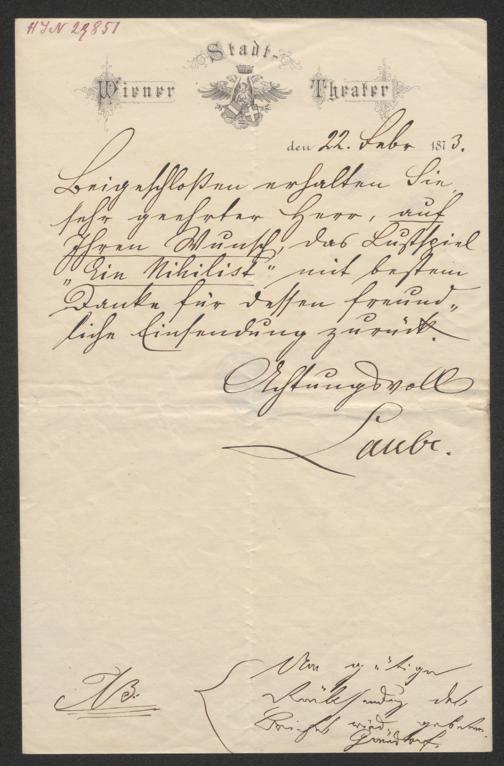 HIN 29851
Wiener Stadt-Theater
den 22. Febr 1873.
Beigeschloßen erhalten Sie,
sehr geehrter Herr, auf
Ihren Wunsch, das Lustspiel
„Ein Nihilist" mit bestem
Danke für dessen freund„
liche Einsendung zurück.
Achtungsvoll
Laube.
NB.
Um gütige
Rücksendung des
Briefes wird gebeten.